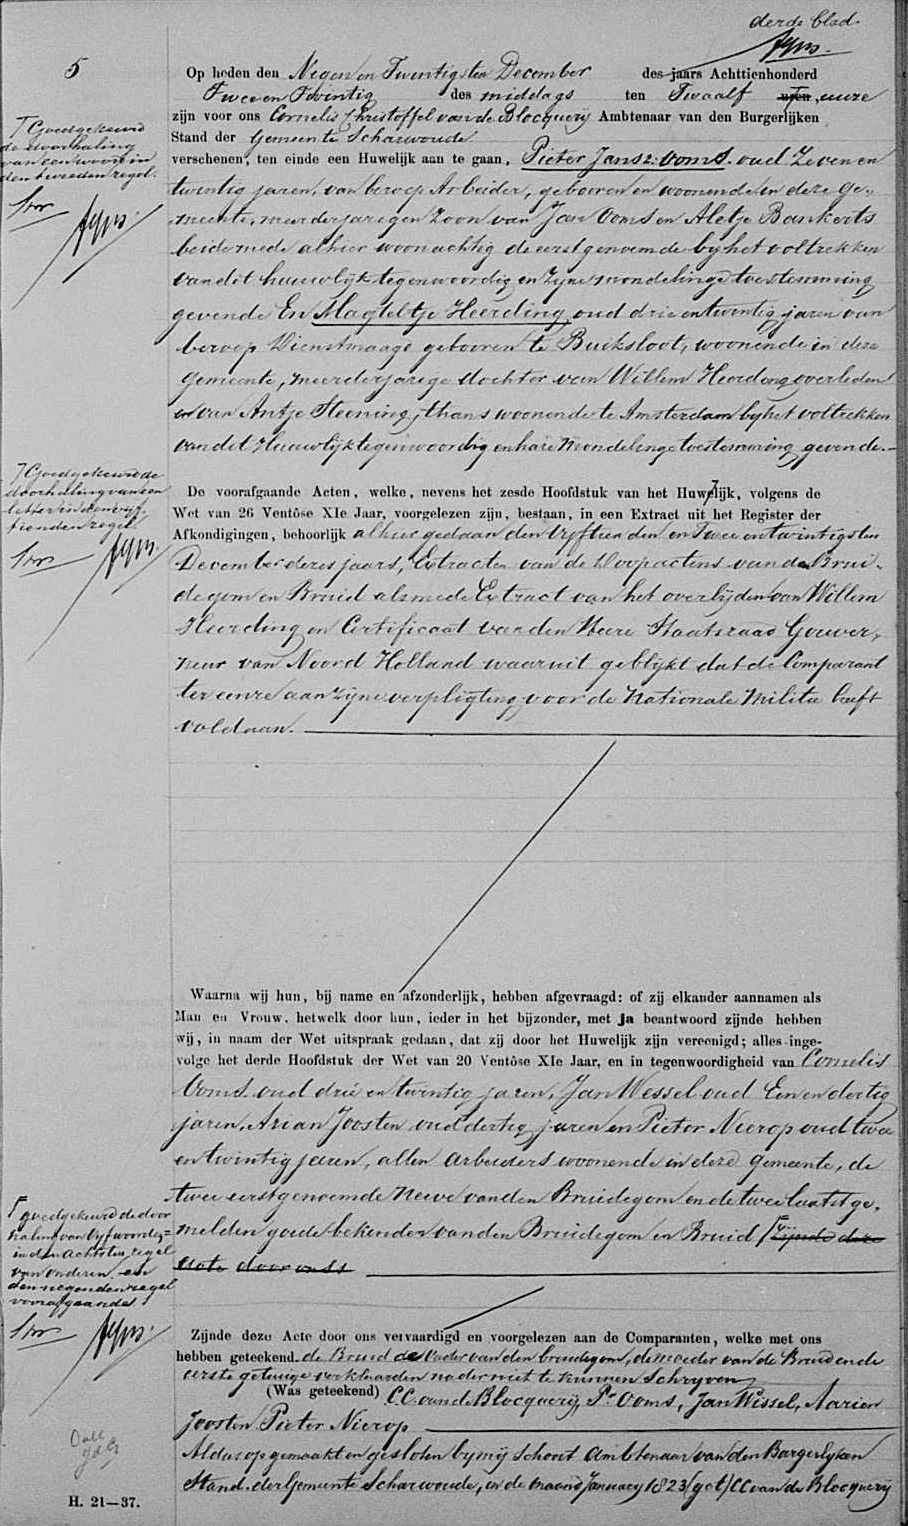 derde blad.
5
Op heden den Negen en Twintigsten December des jaars Achttienhonderd
Twee en Twintig des middags ten Twaalf uren, uure
zijn voor ons Cornelis Christoffel van de Blocquerij Ambtenaar van den Burgerlijken
Stand der Gemeente Scharwoude
verschenen, ten einde een Huwelijk aan te gaan, Pieter Jansz: Ooms. oud Zeven en
twintig jaren, van beroep Arbeider, gebooren en woonende in deze ge-
meente, meerderjarigen Zoon van Jan Ooms en Aletje Bankerts
beide mede alhier woonachtig de eerstgenoemde by het voltrekken
van dit huuwlijk tegenwoordig en Zyne mondelinge toestemming
gevende En Magteltje Heerding oud drie en twintig jaren van
beroep Dienstmaagd gebooren te Buiksloot, woonende in deze
gemeente, meerderjarige dochter van Willem Heerding overleden
en van Antje Steening, thans woonende te Amsterdam by het voltrekken
van dit Huuwlijk tegenwoordig en hare mondelinge toestemming gevende.
Goedgekeurd
de doorhaling
van een woord in
den tweeden regel.
Goedgekeurd de
doorhaling van een
letter in den vyf-
tienden regel
De voorafgaande Acten, welke, nevens het zesde Hoofdstuk van het Huwelijk, volgens de
Wet van 26 Ventôse XIe Jaar, voorgelezen zijn, bestaan, in een Extract uit het Register der
Afkondigingen, behoorlijk alhier gedaan den vyftienden en Twee en twintigsten
December dezes jaars, Extracten van de Doopactens van den Brui-
degom en Bruid alsmede Extract van het overlyden van Willem
Heerding en Certificaat van den Heere Staatsraad Gouver-
neur van Noord Holland waaruit geblykt dat de Comparant
ter eenre aan zyne verpligting voor de Nationale Militie heeft
voldaan.
Waarna wij hun, bij name en afzonderlijk, hebben afgevraagd: of zij elkander aannamen als
Man en Vrouw, hetwelk door hun, ieder in het bijzonder, met ja beantwoord zijnde hebben
wij, in naam der Wet uitspraak gedaan, dat zij door het Huwelijk zijn vereenigd; alles inge-
volge het derde Hoofdstuk der Wet van 20 Ventôse XIe Jaar, en in tegenwoordigheid van Cornelis
Ooms. oud drie en twintig jaren, Jan Wessel oud Een en dertig
jaren, Arian Joosten oud dertig jaren en Pieter Nierop oud twee
en twintig jaren, allen arbeiders woonende in deze gemeente, de
twee eerstgenoemde Neeve van den Bruidegom en de twee laatstge-
melden goede bekenden van den Bruidegom en Bruid zijnde deze
acte door onss
goedgekeurd de door
haling van vyf woorden
in den achtsten regel
van onderen en
den negenden regel
voorafgaande
Zijnde deze Acte door ons vervaardigd en voorgelezen aan de Comparanten, welke met ons
hebben geteekend. de Bruid de Vader van den bruidegom, de moeder van de Bruid en de
eerste getuige verklaarden nader niet te kunnen Schryven
(Was geteekend) C.C. van de Blocquerij, Pr. Ooms, Jan Wissel, Aarien
Joosten Pieter Nierop
Aldus opgemaakt en gesloten by mij Schout Ambtenaar van den Burgerlyken
Stand der Gemeente Scharwoude, in de maand January 1823 (get) CC van de Blocquerij
H. 21—37.